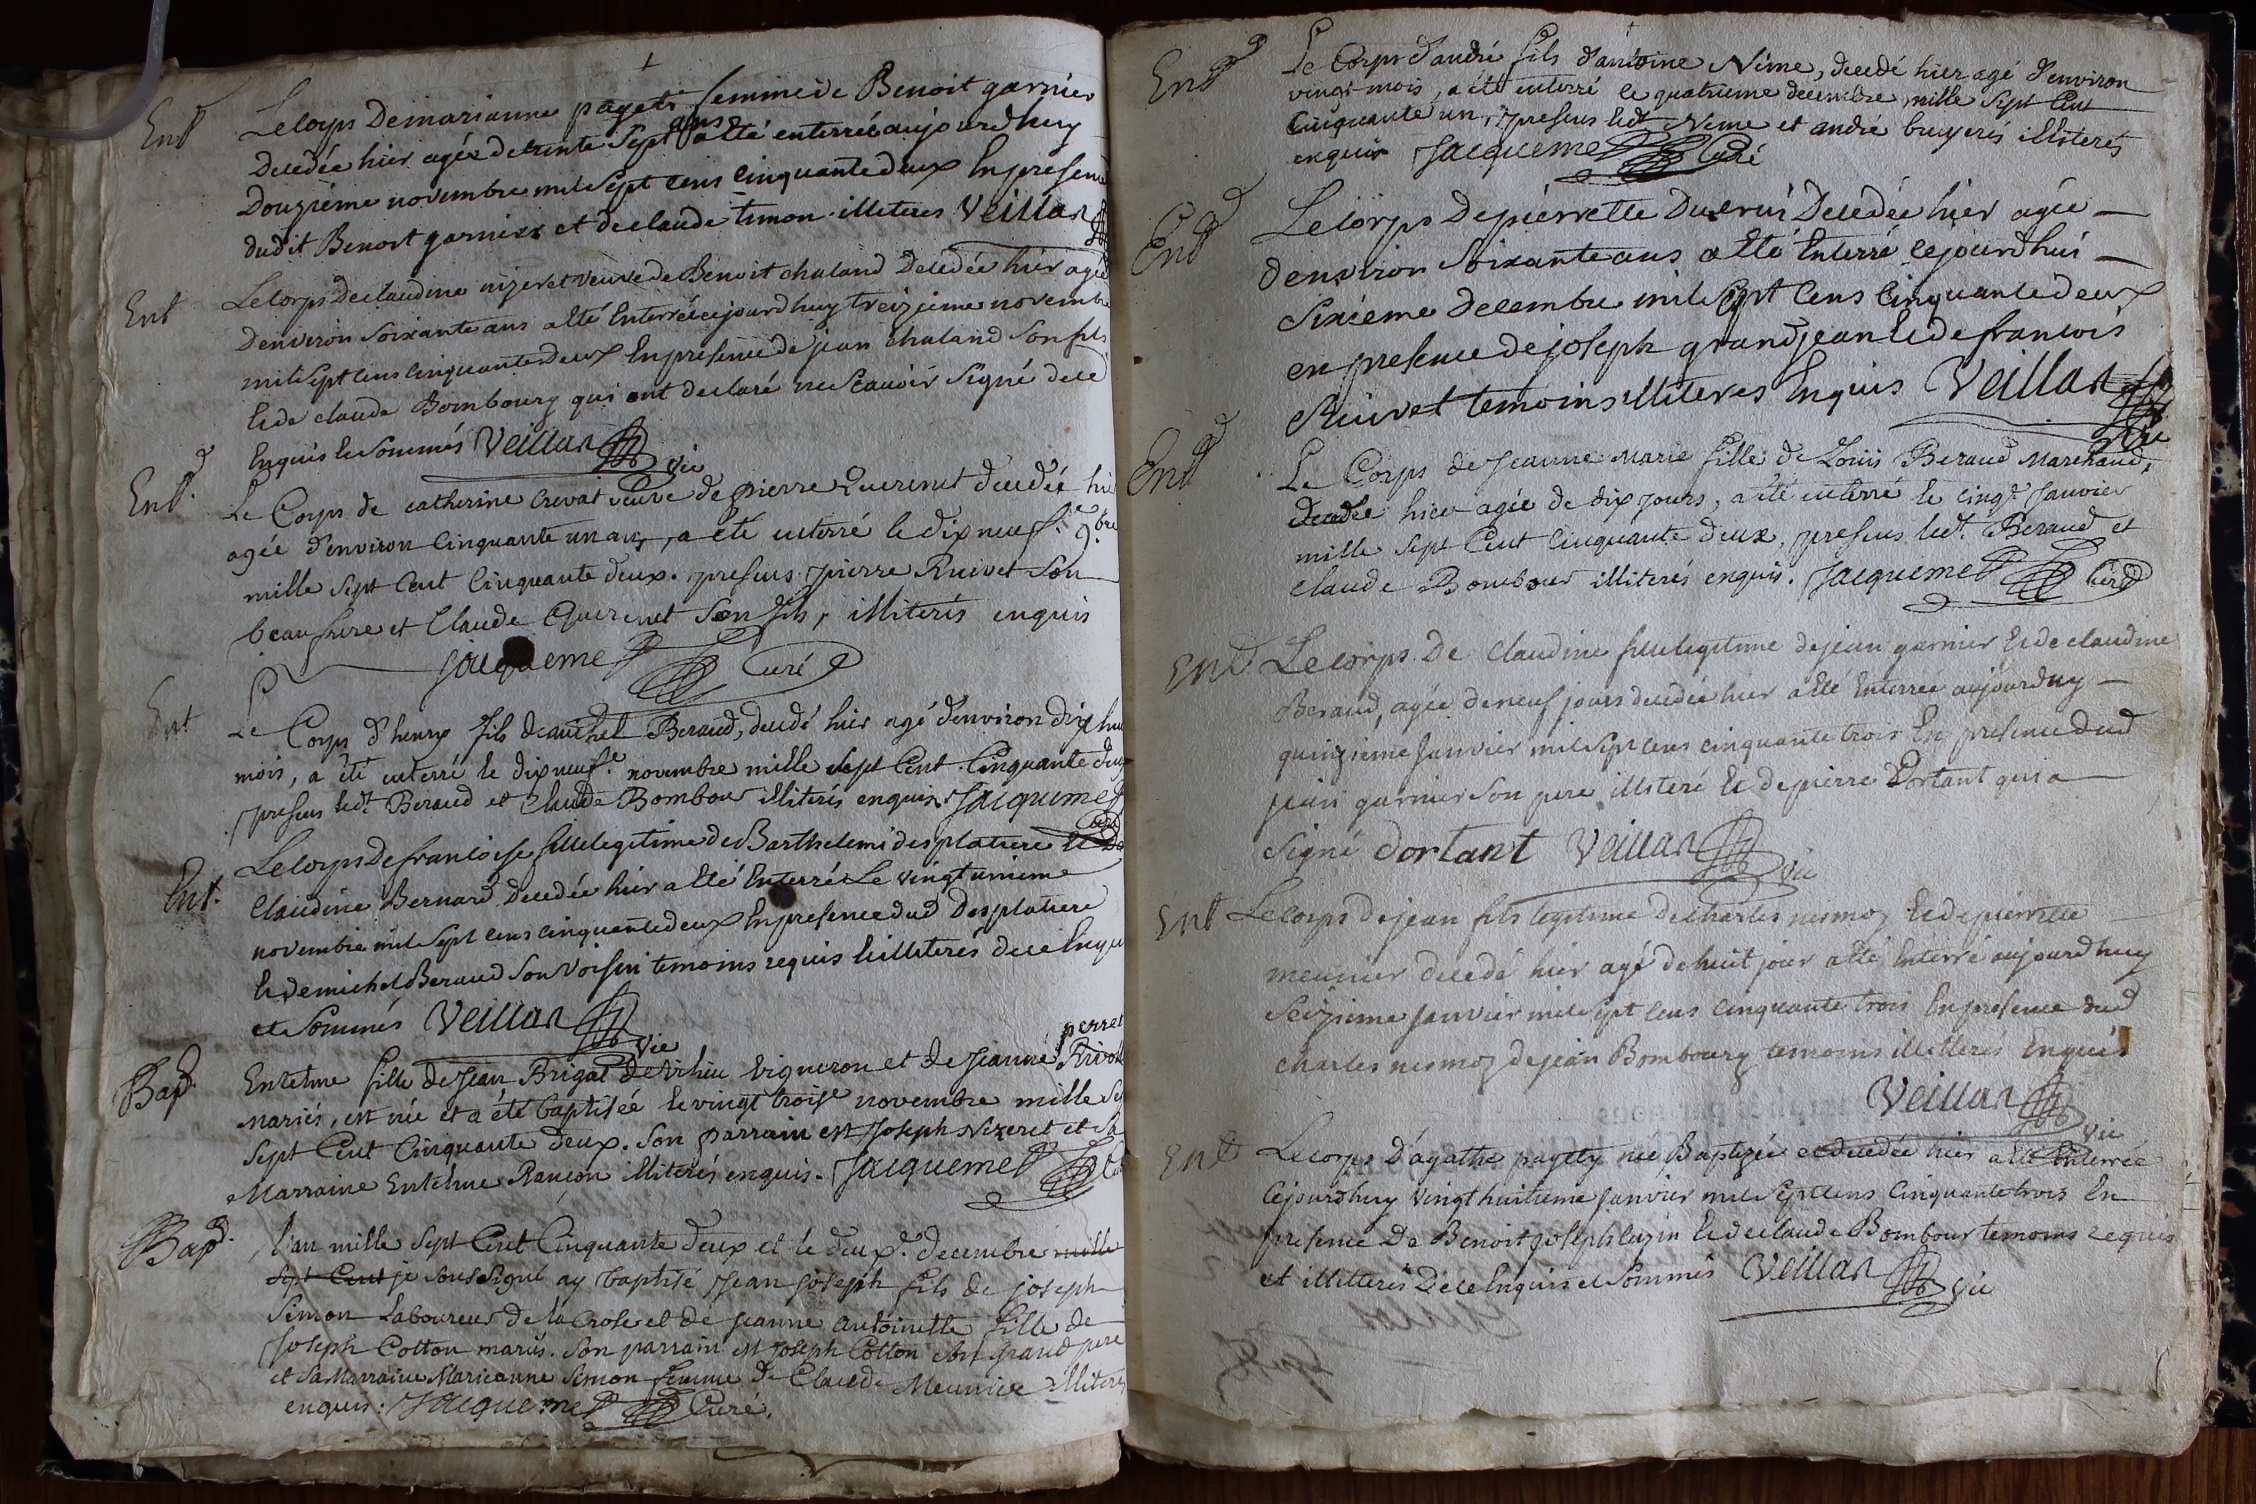 Ent
Le corps De marianne payeti femme de Benoit garnier
ans
Decedée hier agée detrente Sept a été enterrée aujourdhuy
Douzième novembre mil Sept cens cinquante deux En presence
dudit Benoit garnier et de claude timon illiteres Veillan
Ent
Le corps De claudine nizeret veuve de Benoit chaland Decedée hier agée
Denviron Soixante ans a Eté Enterrée cejourdhuy treizieme novembre
mil Sept cens cinquante deux En presence de jean chaland Son fils
Et de claude Bombourg qui ont declaré ne Scavoir Signé de ce
Enquis et Sommés Veillan vic
Ent.
Le Corps de catherine Crevat veuve de pierre Querenet decedée hier
agée d'environ Cinquante un ans, a été enterré le dix neuf.e 9.bre
mille sept Cent Cinquante deux. presens pierre Ruivet Son
beau frere et Claude Querenet Son fils, illiterés enquis
Jacquemet Curé
Ent
Le Corps d'henry fils de michel Beraud, decedé hier agé d'environ dix huit
mois, a été enterré le dix neuf.e novembre mille sept Cent Cinquante deux
presens led.t Beraud et Claude Bombour illiterés enquis. Jacquemet
Curé
Ent.
Le corps De francoise fille legitime de Barthelemi desplatiere Et De
Claudine Bernard Decedée hier a Eté Enterrée Le vingt unieme
novembre mil Sept cens cinquante deux En presence dud Desplatiere
Et de michel Beraud Son Voisin temoins requis Et illiterés de ce Enquis
et Sommés Veillan vic
Bap.
perret
Entelme fille de Jean Brigat de virieu vigneron et de Jeanne
mariés, est née et a été baptisée le vingt trois.e novembre mille
Sept Cent Cinquante deux. Son parrain est Joseph Nizeret et Sa
Marraine Entelme Rançon illiterés enquis. Jacquemet Curé
Bap.
l'an mille Sept Cent Cinquante deux et le deux.e decembre mille
Sept Cent je soussigné ay baptisé Jean joseph fils de joseph
Simon Laboureur de la Crose et de Jeanne Antoinette fille de
Joseph Cotton mariés. Son parrain est Joseph Cotton Son grand pere
et Sa Marraine Marieanne Simon femme de Claude Meunier illiterés
enquis. Jacquemet Curé.
Ent
Le Corps d'andré fils d'antoine Nême, decedé hier agé d'environ
vingt mois, a été enterré le quatrieme decembre mille Sept Cent
Cinquante un, presens led.t Neme et andré bruyeres illiterés
enquis Jacquemet Curé
Ent
Le corps De pierrette Ducrui Decedée hier agée
denviron Soixante ans a Eté Enterré cejourdhui
Sixieme Decembre mil Sept Cens Cinquante deux
en presence de joseph grandjean Et de francois
Ruivet temoins illiteres Enquis Veillan
vic
Ent
Le Corps de Jeanne Marie fille de Louis Beraud Marchand,
decedée hier agée de dix jours, a été enterré le cinq.e janvier
mille Sept Cent Cinquante deux, presens led.t Beraud et
Claude Bombour illiterés enquis. Jacquemet Curé
Ent
Le corps De Claudine fille legitime de jean garnier Et de claudine
Beraud, agée de neuf jours decedée hier a Eté Enterree aujourdhuy
quinzieme Janvier mil Sept cens cinquante trois En presence dud
jean garnier Son pere illiteré Et de pierre Dortant qui a
Signé Dortant Veillan vic
Ent
Le corps de jean fils legitime de charles nesmoz Et de pierrette
meunier decedé hier agé de huit jour a Eté Enterré aujourdhuy
Seizieme Janvier mil Sept cens cinquante trois En presence dud
charles nesmoz de jean Bombourg temoins illitterés Enquis
Veillan vic
Ent
Le corps D'agathe paytty née Baptizée et decedée hier a Eté Enterrée
cejourdhuy vingt huitieme Janvier mil Sept cens Cinquante trois En
presence De Benoit joseph luzin Et de claude Bombour temoins requis
et illitterés De ce Enquis et Sommés Veillan vic